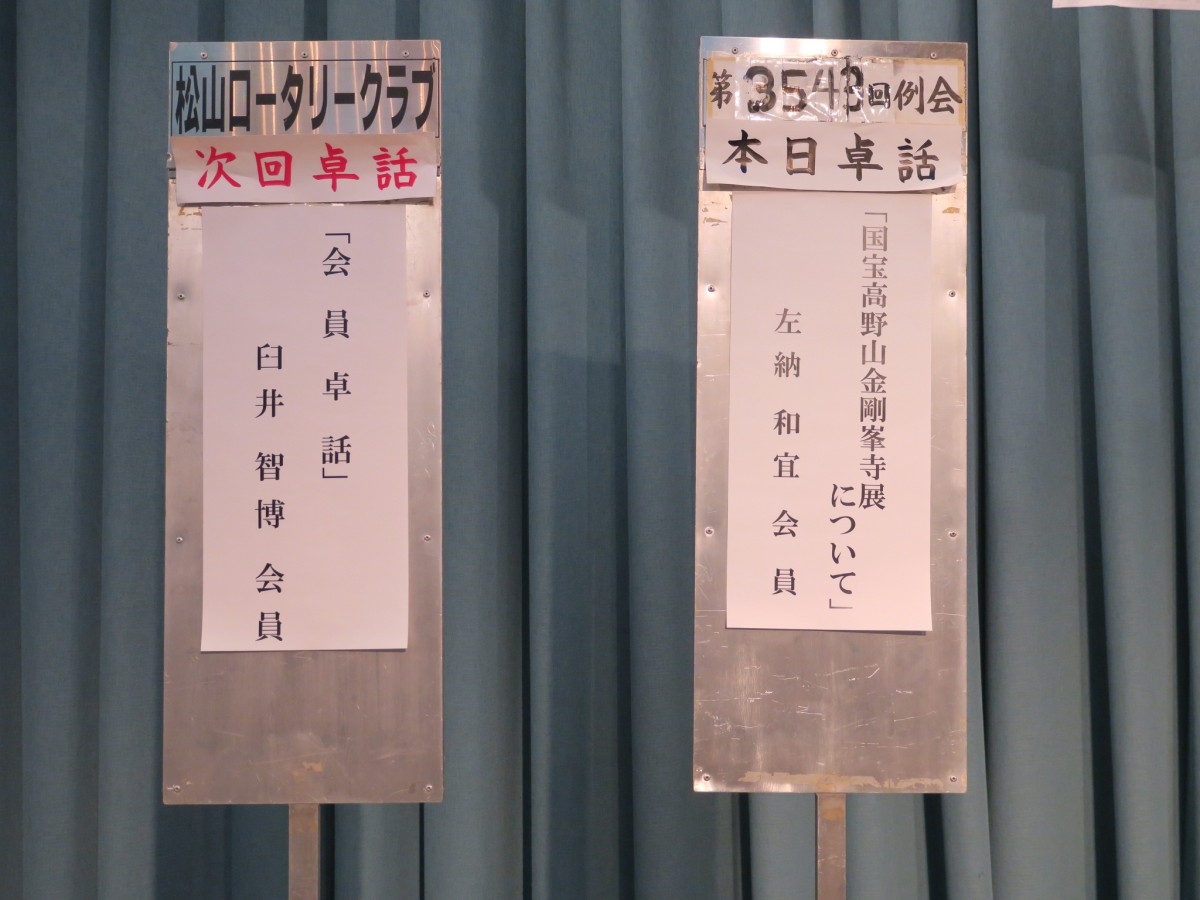 松山ロータリークラブ
次回卓話
「会員卓話」
臼井智博会員
第3543回例会
本日卓話
「国宝高野山金剛峯寺展
について」
左納和宜会員